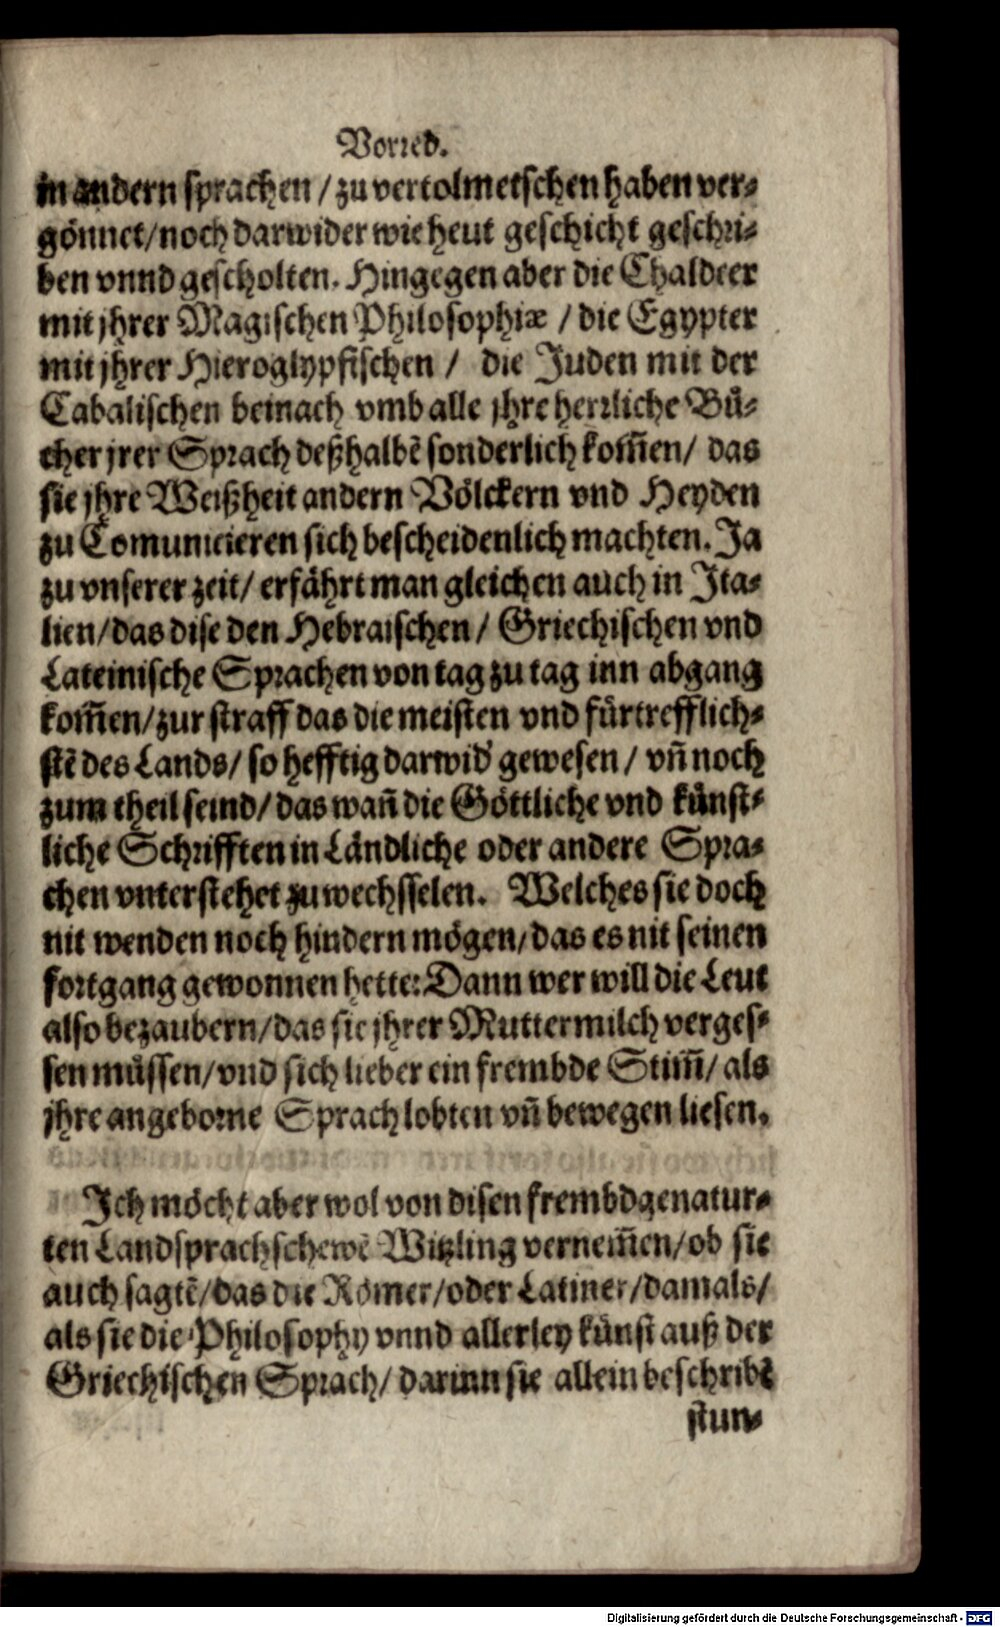 Vorred.
in andern sprachen / zu vertolmetschen haben ver-
gönnet/noch darwider wie heut geschicht geschri-
ben vnnd gescholten. Hingegen aber die Chaldeer
mit jhrer Magischen Philosophiæ / die Egypter
mit jhrer Hieroglypfischen / die Juden mit der
Cabalischen beinach vmb alle jhre herrliche Bü-
cher jrer Sprach deßhalbẽ sonderlich kom̃en/ das
sie jhre Weißheit andern Völckern vnd Heyden
zu Comunicieren sich bescheidenlich machten. Ja
zu vnserer zeit/ erfährt man gleichen auch in Ita-
lien/das dise den Hebraischen/ Griechischen vnd
Lateinische Sprachen von tag zu tag inn abgang
kom̃en/zur straff das die meisten vnd fürtrefflich-
stẽ des Lands/ so hefftig darwid' gewesen/ vñ noch
zum theil seind/ das wañ die Göttliche vnd künst-
liche Schrifften in Ländliche oder andere Spra-
chen vnterstehet zu wechsselen. Welches sie doch
nit wenden noch hindern mögen/das es nit seinen
fortgang gewonnen hette: Dann wer will die Leut
also bezaubern/das sie jhrer Muttermilch verges-
sen müssen/vnd sich lieber ein frembde Stim̃/ als
jhre angeborne Sprach lobten vñ bewegen liesen.
Ich möcht aber wol von disen frembdgenatur-
ten Landsprachschewẽ Witzling vernem̃en/ob sie
auch sagtẽ/das die Römer/oder Latiner/damals/
als sie die Philosophy vnnd allerley künst auß der
Griechischen Sprach/ darinn sie allein beschribẽ
stun-
Digitalisierung gefördert durch die Deutsche Forschungsgemeinschaft - DFG